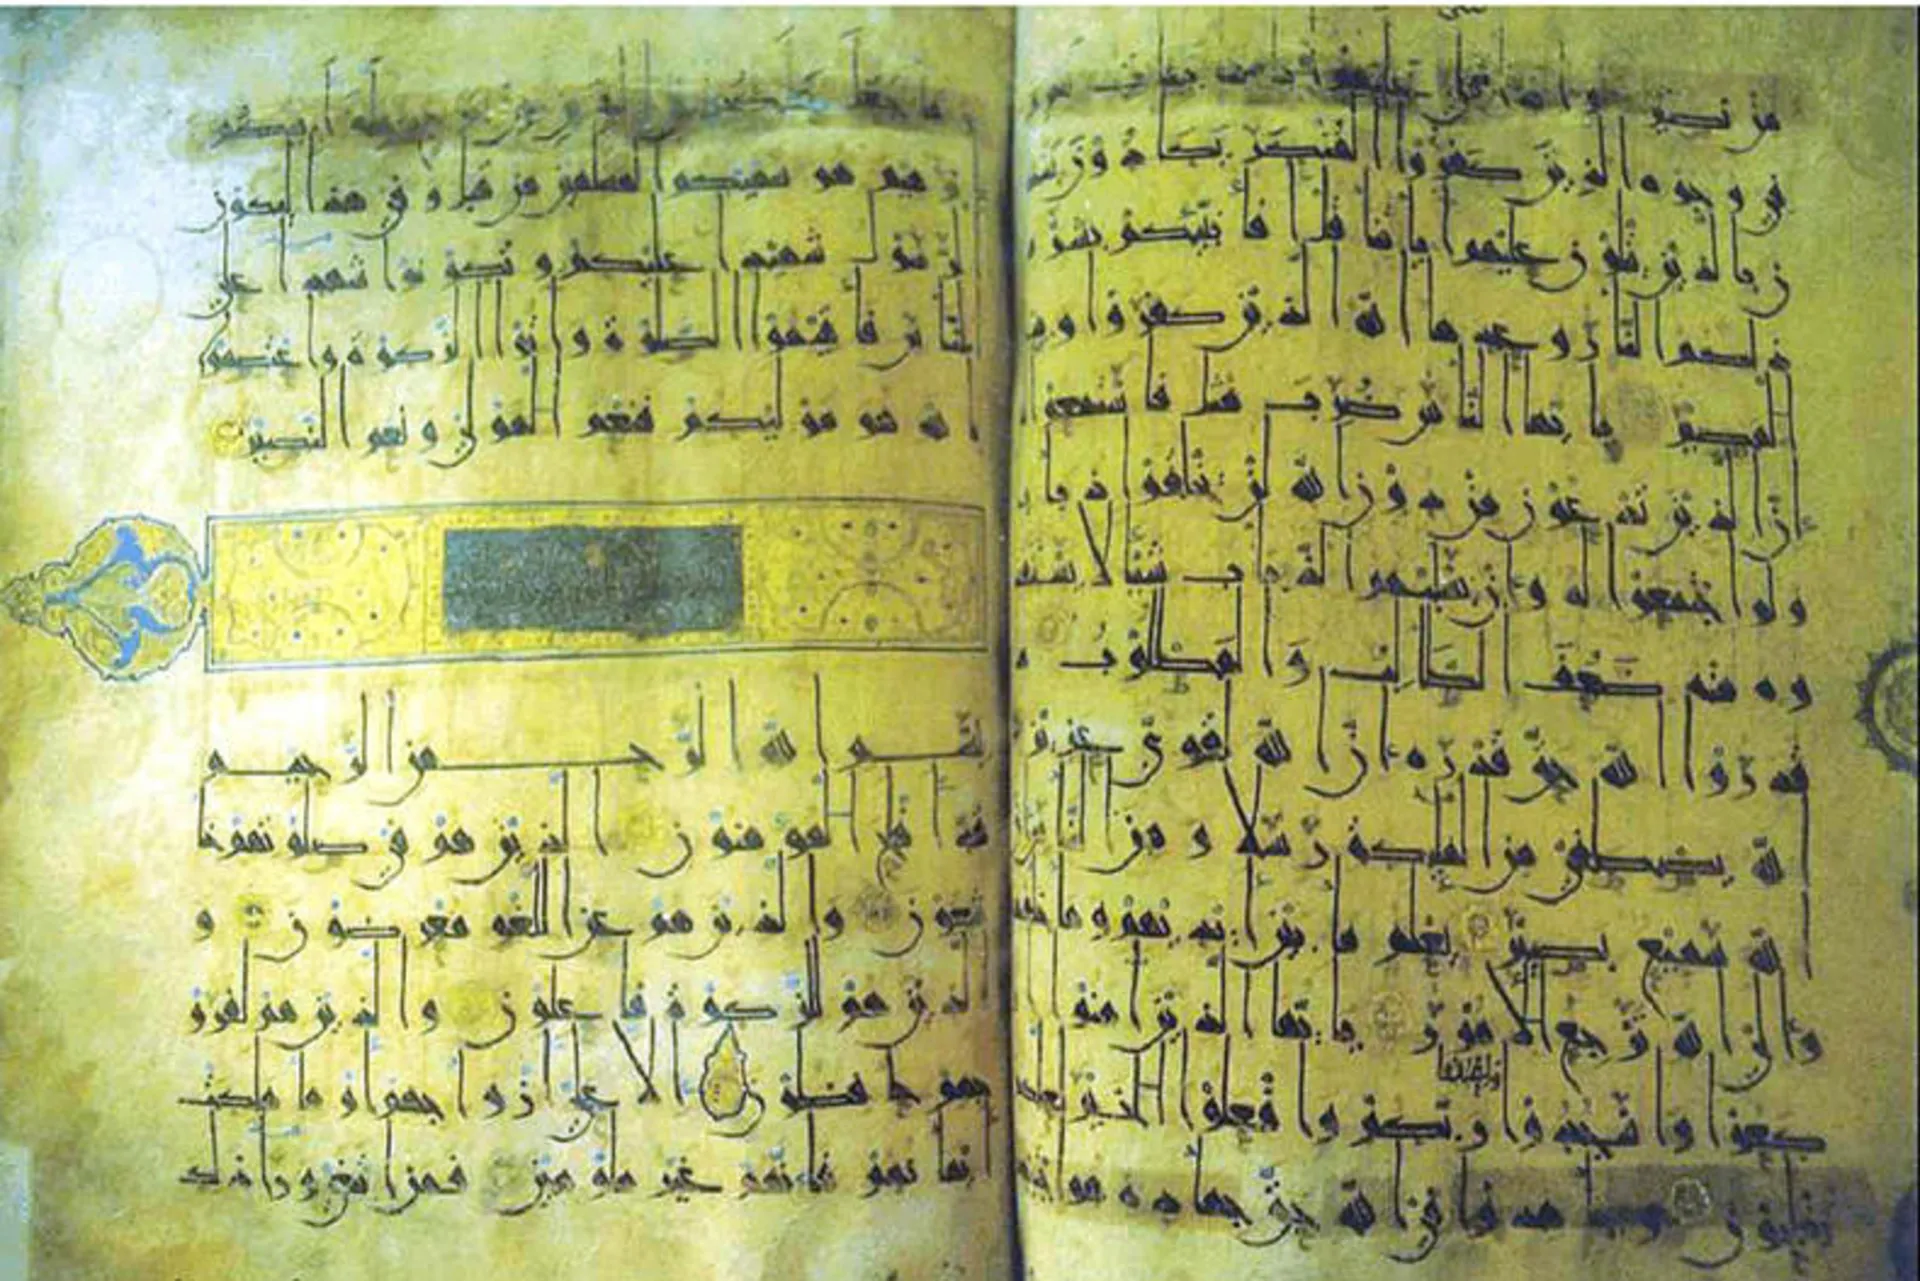 من نصير وإذا تتلى عليهم ءايتنا بينت تعرف
في وجوه الذين كفروا المنكر يكادون يس
ن بالذين يتلون عليهم ءايتنا قل أفأنبئكم بشر
ذلكم النار وعدها الله الذين كفروا وبئس
المصير يأيها الناس ضرب مثل فاستمعوا
إن الذين تدعون من دون الله لن يخلقوا ذبابا
ولو اجتمعوا له وإن يسلبهم الذباب شيئا لا يستنقذ
وه منه ضعف الطالب والمطلوب ما
قدروا الله حق قدره إن الله لقوي عزيز
الله يصطفي من الملئكة رسلا ومن الناس
الله سميع بصير يعلم ما بين أيديهم وما خلفهم
وإلى الله ترجع الأمور يأيها الذين ءامنوا
واعبدوا
كعوا واسجدوا ربكم وافعلوا الخير لعلكم
تفلحون وجهدوا في الله حق جهاده هو اجتبكم
وما جعل عليكم في الدين من حرج ملة أبيكم
إبرهيم هو سميكم المسلمين من قبل وفي هذا ليكون
الرسول شهيدا عليكم وتكونوا شهداء على
الناس فأقيموا الصلوة وءاتوا الزكوة واعتصموا
بالله هو موليكم فنعم المولى ونعم النصير
بسم الله الرحمن الرحيم
قد أفلح المؤمنون الذين هم في صلاتهم خا
شعون والذين هم عن اللغو معرضون و
الذين هم للزكوة فاعلون والذين هم لفرو
جهم حافظون إلا على أزواجهم أو ما ملكت
أيمانهم فإنهم غير ملومين فمن ابتغى وراء ذلك